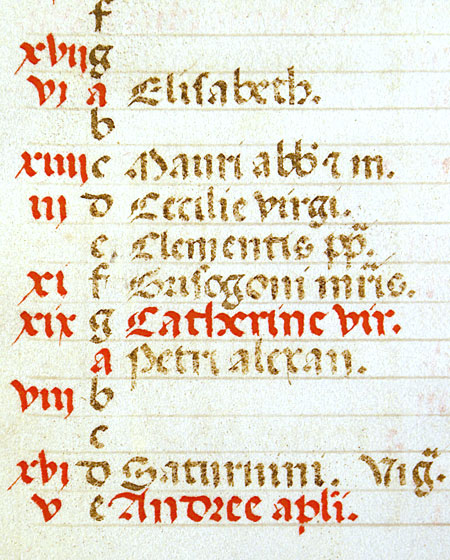 f
xvii g
vi a Elisabeth.
b
xiiii c Mauri abb̃ ⁊ m.
iii d Cecilie virgi.
e Clementis pp̃.
xi f Grisogoni mr̃is.
xix g Catherine vir.
a Petri alexan.
viii b
c
xvi d Saturnini. Vig̃.
v e Andree apli.